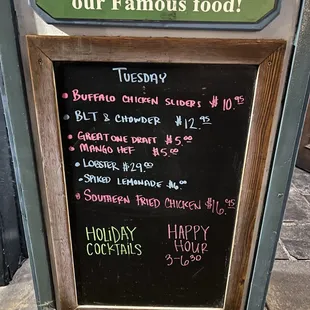 our Famous food!
TUESDAY
BUFFALO CHICKEN SLIDERS $10.95
BLT & CHOWDER $12.95
GREAT ONE DRAFT $5.00
MANGO HEF $5.00
LOBSTER $29.00
SPIKED LEMONADE $6.00
SOUTHERN FRIED CHICKEN $16.95
HOLIDAY
COCKTAILS
HAPPY
HOUR
3-6:30